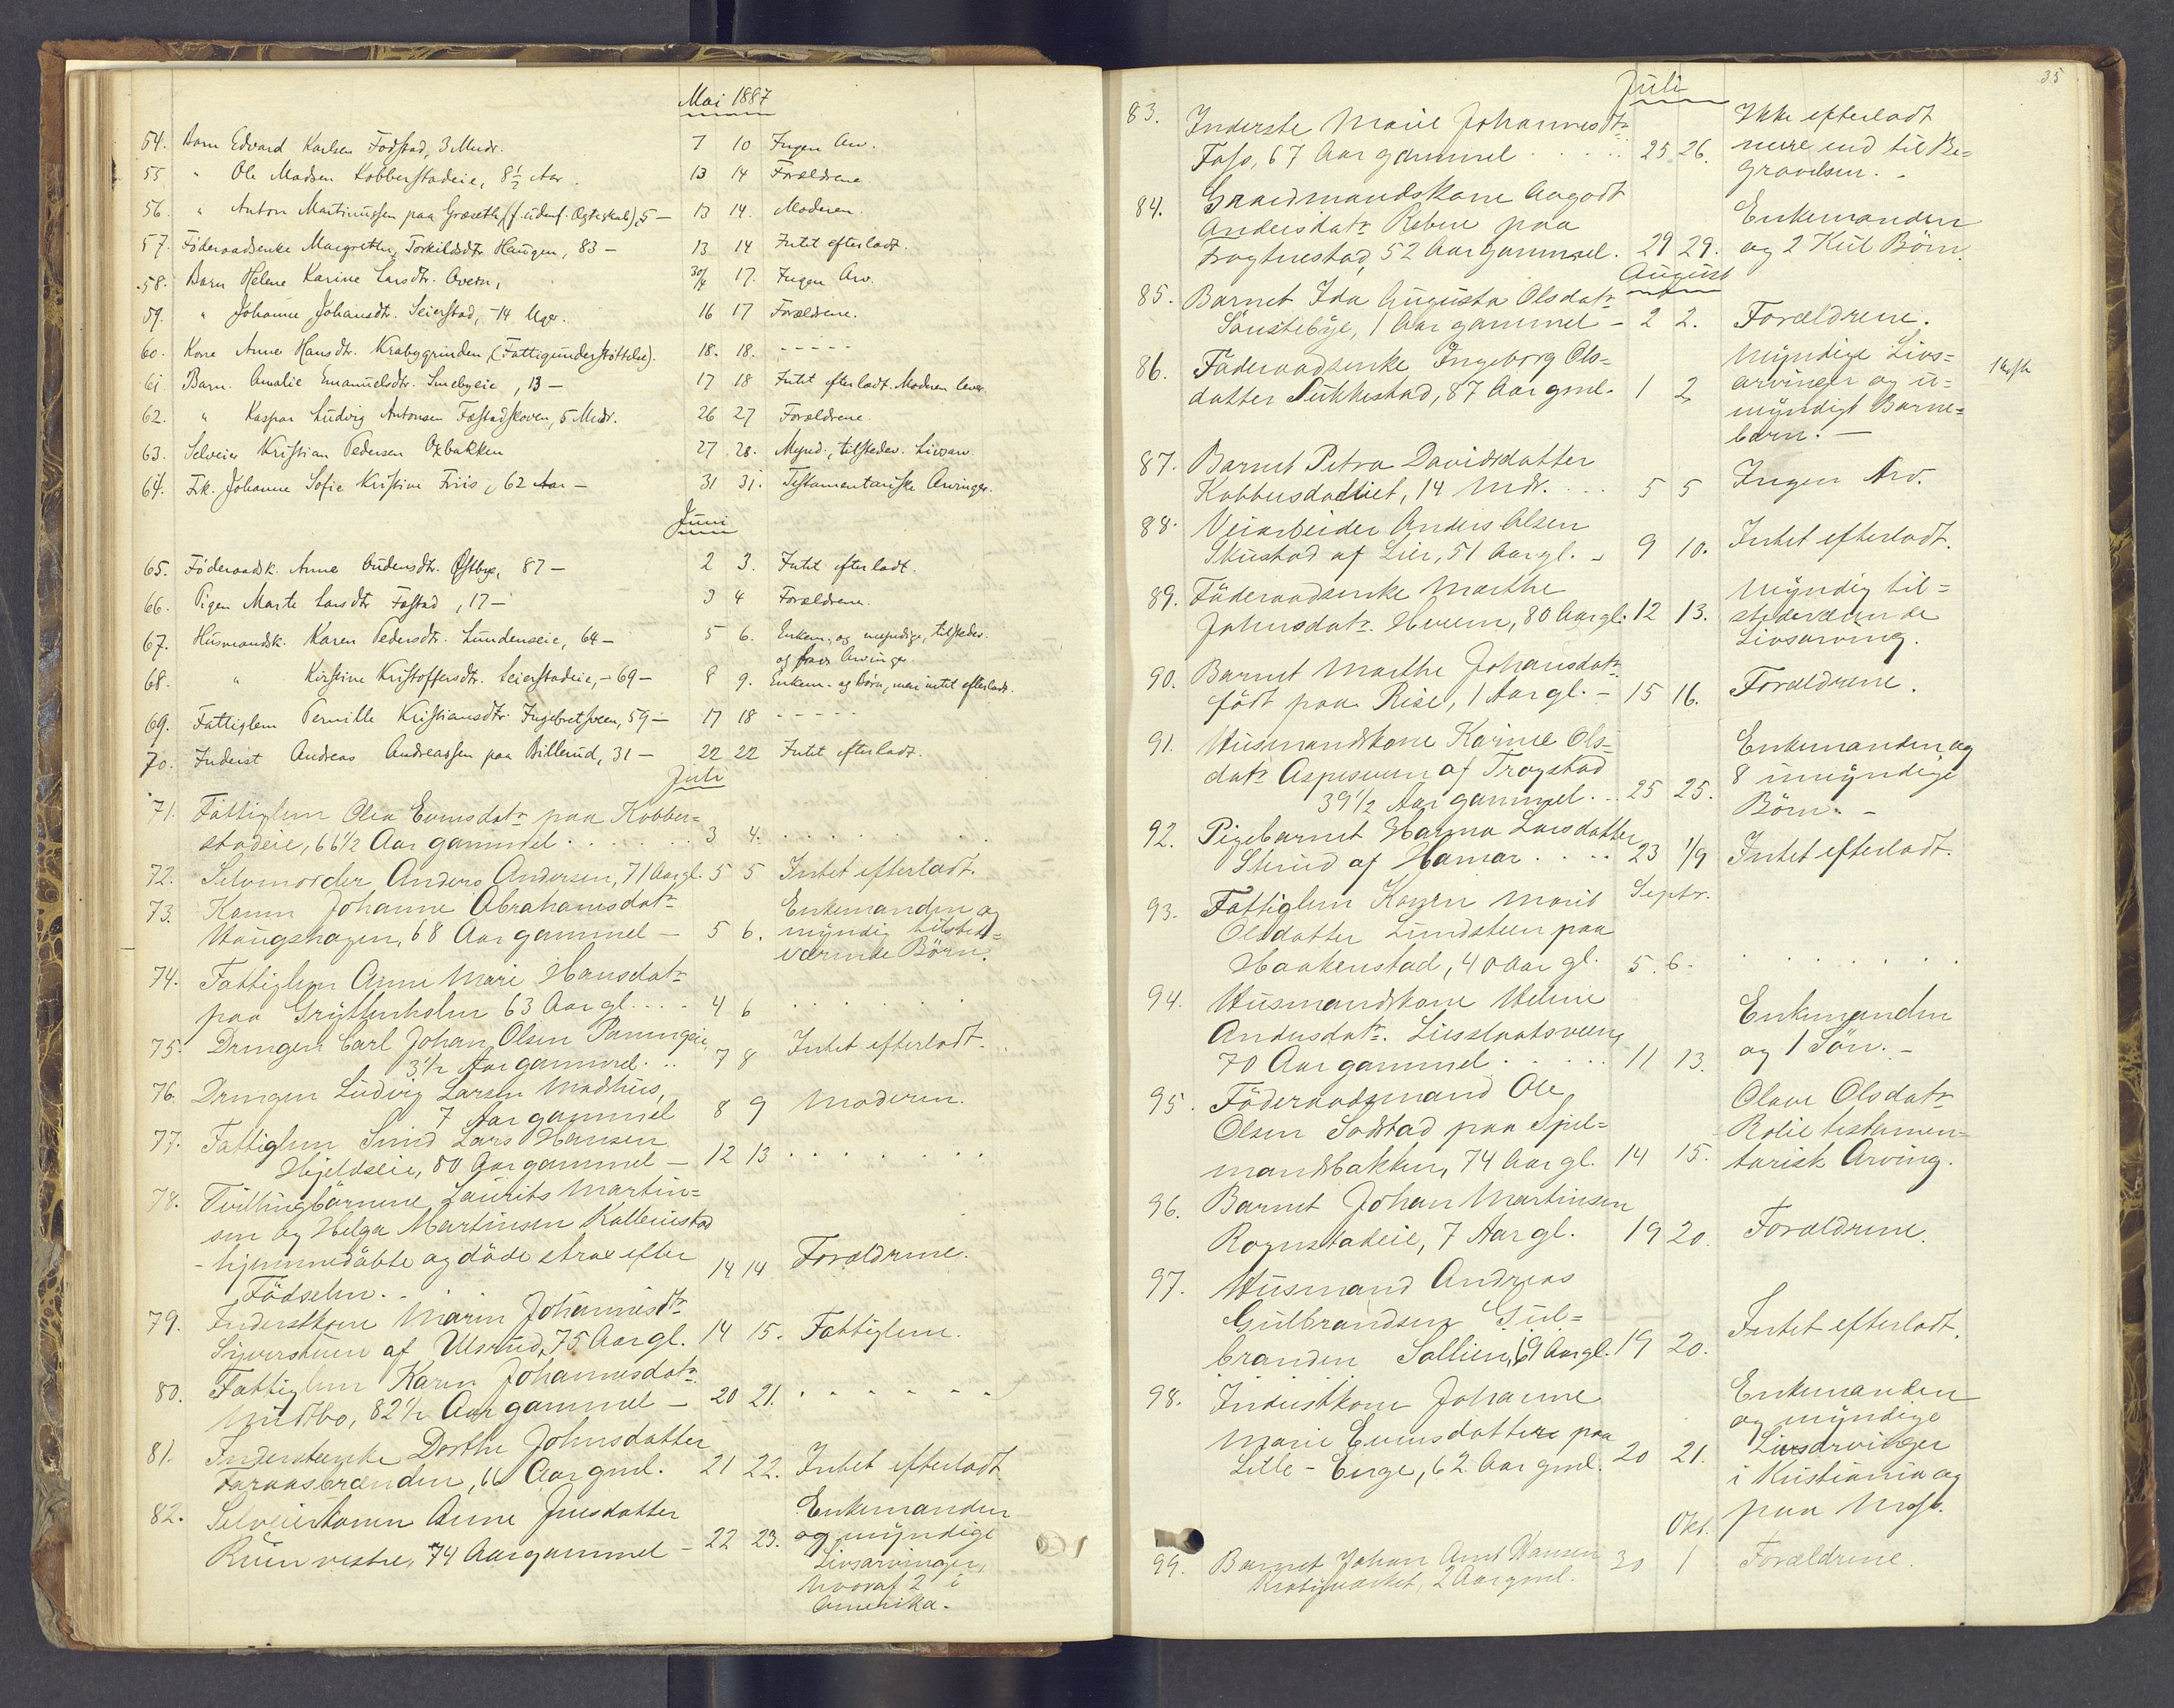 Mai 1887
54. Barn Edvard Karlsen Fodstad, 3 Mndr. 7 10 Ingen Arv.
55 " Ole Madsen Kobberstadeie, 8 1/2 Aar. 13 14 Forældrene.
56. " Anton Martinussen paa Græseth, (f. udenf. Ægteskab), 5 — 13 14. Moderen.
57. Föderaadsenke Margrethe Torkildsdtr. Haugen, 83 — 13 14 Intet efterladt.
58. Barn Helene Karine Larsdtr. 30/4 17. Ingen Arv.
59. " Johanne Johansdtr. Seierstad, 14 Uger. 16 17 Forældrene.
60. Kone Anne Hansdtr. Krabygrinden, (Fattigunderstöttelse). 18. 18. - - - - -
61. Barn. Amalie Emanuelsdtr. Smebyeie, 13 — 17 18 Intet efterladt. Moderen lever
62. " Kaspar Ludvig Antonsen Fostadskoven, 5 Mndr. 26 27 Forældrene.
63. Selveier Kristian Pedersen Oxbakken 27 28. Mynd., tilstedev. Livsarv.
64. Frk. Johanne Sofie Kristine Friis, 62 Aar — 31 31. Testamentariske Arvinger.
Juni
65. Föderaadsk. Anne Audensdtr. Østbye, 87 — 2 3. Intet efterladt.
66. Pigen Marte Larsdtr Fostad, 17 — 3 4 Forældrene.
67. Husmandsk. Karen Pedersdtr. Lundenseie, 64 — 5 6. Enkem. og myndige, tilstedev.
og frav. Arvinger.
68. " Kirstine Kristoffersdtr. Seierstadeie, - 69 — 8 9. Enkem. og Börn, men intet efterladt.
69. Fattiglem Pernille Kristiansdtr. Ingebretsveen, 59 — 17 18 - - - - -
70. Inderst Andreas Andreassen paa Billerud, 31 — 22 22 Intet efterladt.
Juli
71. Fattiglem Olea Evensdatr paa Kobber=
stadeie, 66 1/2 Aar gammel . . . . 3 4. . . . . . .
72. Selvmorder Anders Andersen, 71 Aar gl. 5 5 Intet efterladt.
73. Konen Johanne Abrahamsdatr Enkemanden og
Haugshagen, 68 Aar gammel — 5 6. myndig tilsted=
værende Börn.
74. Fattiglem Anne Mari Hansdatr
paa Gryttenholm 63 Aar gl. . . . 4 6 . . . . . .
75. Drengen Carl Johan Olsen
3 1/2 Aar gammel. . . 7 8 Intet efterladt.
76. Drengen Ludvig Larsen Madshus,
7 Aar gammel 8 9 Moderen.
77. Fattiglem Smed Lars Hansen
Hjeldseie, 80 Aar gammel — 12 13 . . . . . . .
78. Tvillingbörnene Laurits Martin=
sen og Helga Martinsen Kollerustad
- hjemmedöbte og döde strax efter 14 14 Forældrene.
Födselen. -
79. Inderstkone Maren Johannesdtr
Syverstuen af Ulsrud, 75 Aar gl. 14 15. Fattiglem.
80. Fattiglem Karen Johannesdatr.
Midtbo, 82 1/2 Aar gammel — 20 21. . . . . . .
81. Inderstenke Dorthe Johnsdatter
66 Aar gml. 21 22. Intet efterladt.
82. Selveierkonen Anne Jensdatter Enkemanden
Ruen vestre, 74 Aar gammel - 22 23. og myndige
Livsarvinger,
hvoraf 2 i
Amerika.
35
Juli
83. Inderste Marie Johannesdtr Ikke efterladt
Foss, 67 Aar gammel . . . . 25 26. mere end til Be=
gravelsen. -
84. Gaardmandskone Aagodt Enkemanden
Andersdatr Rebne paa og 2 Kuld Börn.
52 Aar gammel. 29 29.
August
85. Barnet Ida Augusta Olsdatr
Sönsteböe, 1 Aar gammel - 2 2. Forældrene.
86. Föderaadsenke Ingeborg Ols= Myndige Livs=
datter 87 Aar gml. 1 2 arvinger og u=
myndigt Barne=
barn. —
87. Barnet Petra Davidsdatter
14 Mdr. . . . 5 5 Ingen Arv.
88. Veiarbeider Anders Olsen
Skustad af Lier, 51 Aar gl. - 9 10. Intet efterladt.
89. Föderaadsenke Marthe Myndig til=
Johnsdatr. Hveem, 80 Aar gl. 12 13. stedeværende
Livsarving.
90. Barnet Marthe Johansdatr
födt paa Rise, 1 Aar gl. - 15 16. Forældrene.
91. Husmandskone Karine Ols= Enkemanden og
datr Aspesveen af Trøgstad 8 umyndige
39 1/2 Aar gammel. . 25 25. Börn. -
92. Pigebarnet Hanna Larsdatter
af Hamar. . . . 23 1/9 Intet efterladt.
Septr.
93. Fattiglem Karen Marie
Olsdatter Lundsteen paa
Haakenstad, 40 Aar gl. 5. 6. . . . . . . .
94. Husmandskone Helene Enkemanden
Andersdatr. og 1 Sön. -
70 Aar gammel . . . . 11 13.
95. Föderaadsmand Ole Olave Olsdatr
Olsen Sodstad paa Spil= Rolie testamen=
mandsbakken, 74 Aar gl. 14 15. tarisk Arving.
96. Barnet Johan Martinsen
Rognstadeie, 7 Aar gl. 19 20. Forældrene.
97. Husmand Andreas
Gulbrandsen Gul=
branden Sollien, 69 Aar gl. 19 20. Intet efterladt.
98. Inderstkone Johanne Enkemanden
Marie Evensdatter paa og myndige
Lille-Enge, 62 Aar gml. 20 21. Livsarvinger
i Kristiania og
paa Moss.
Okt.
99. Barnet Johan Arnt Hansen 30 1 Forældrene.
2 Aar gml.